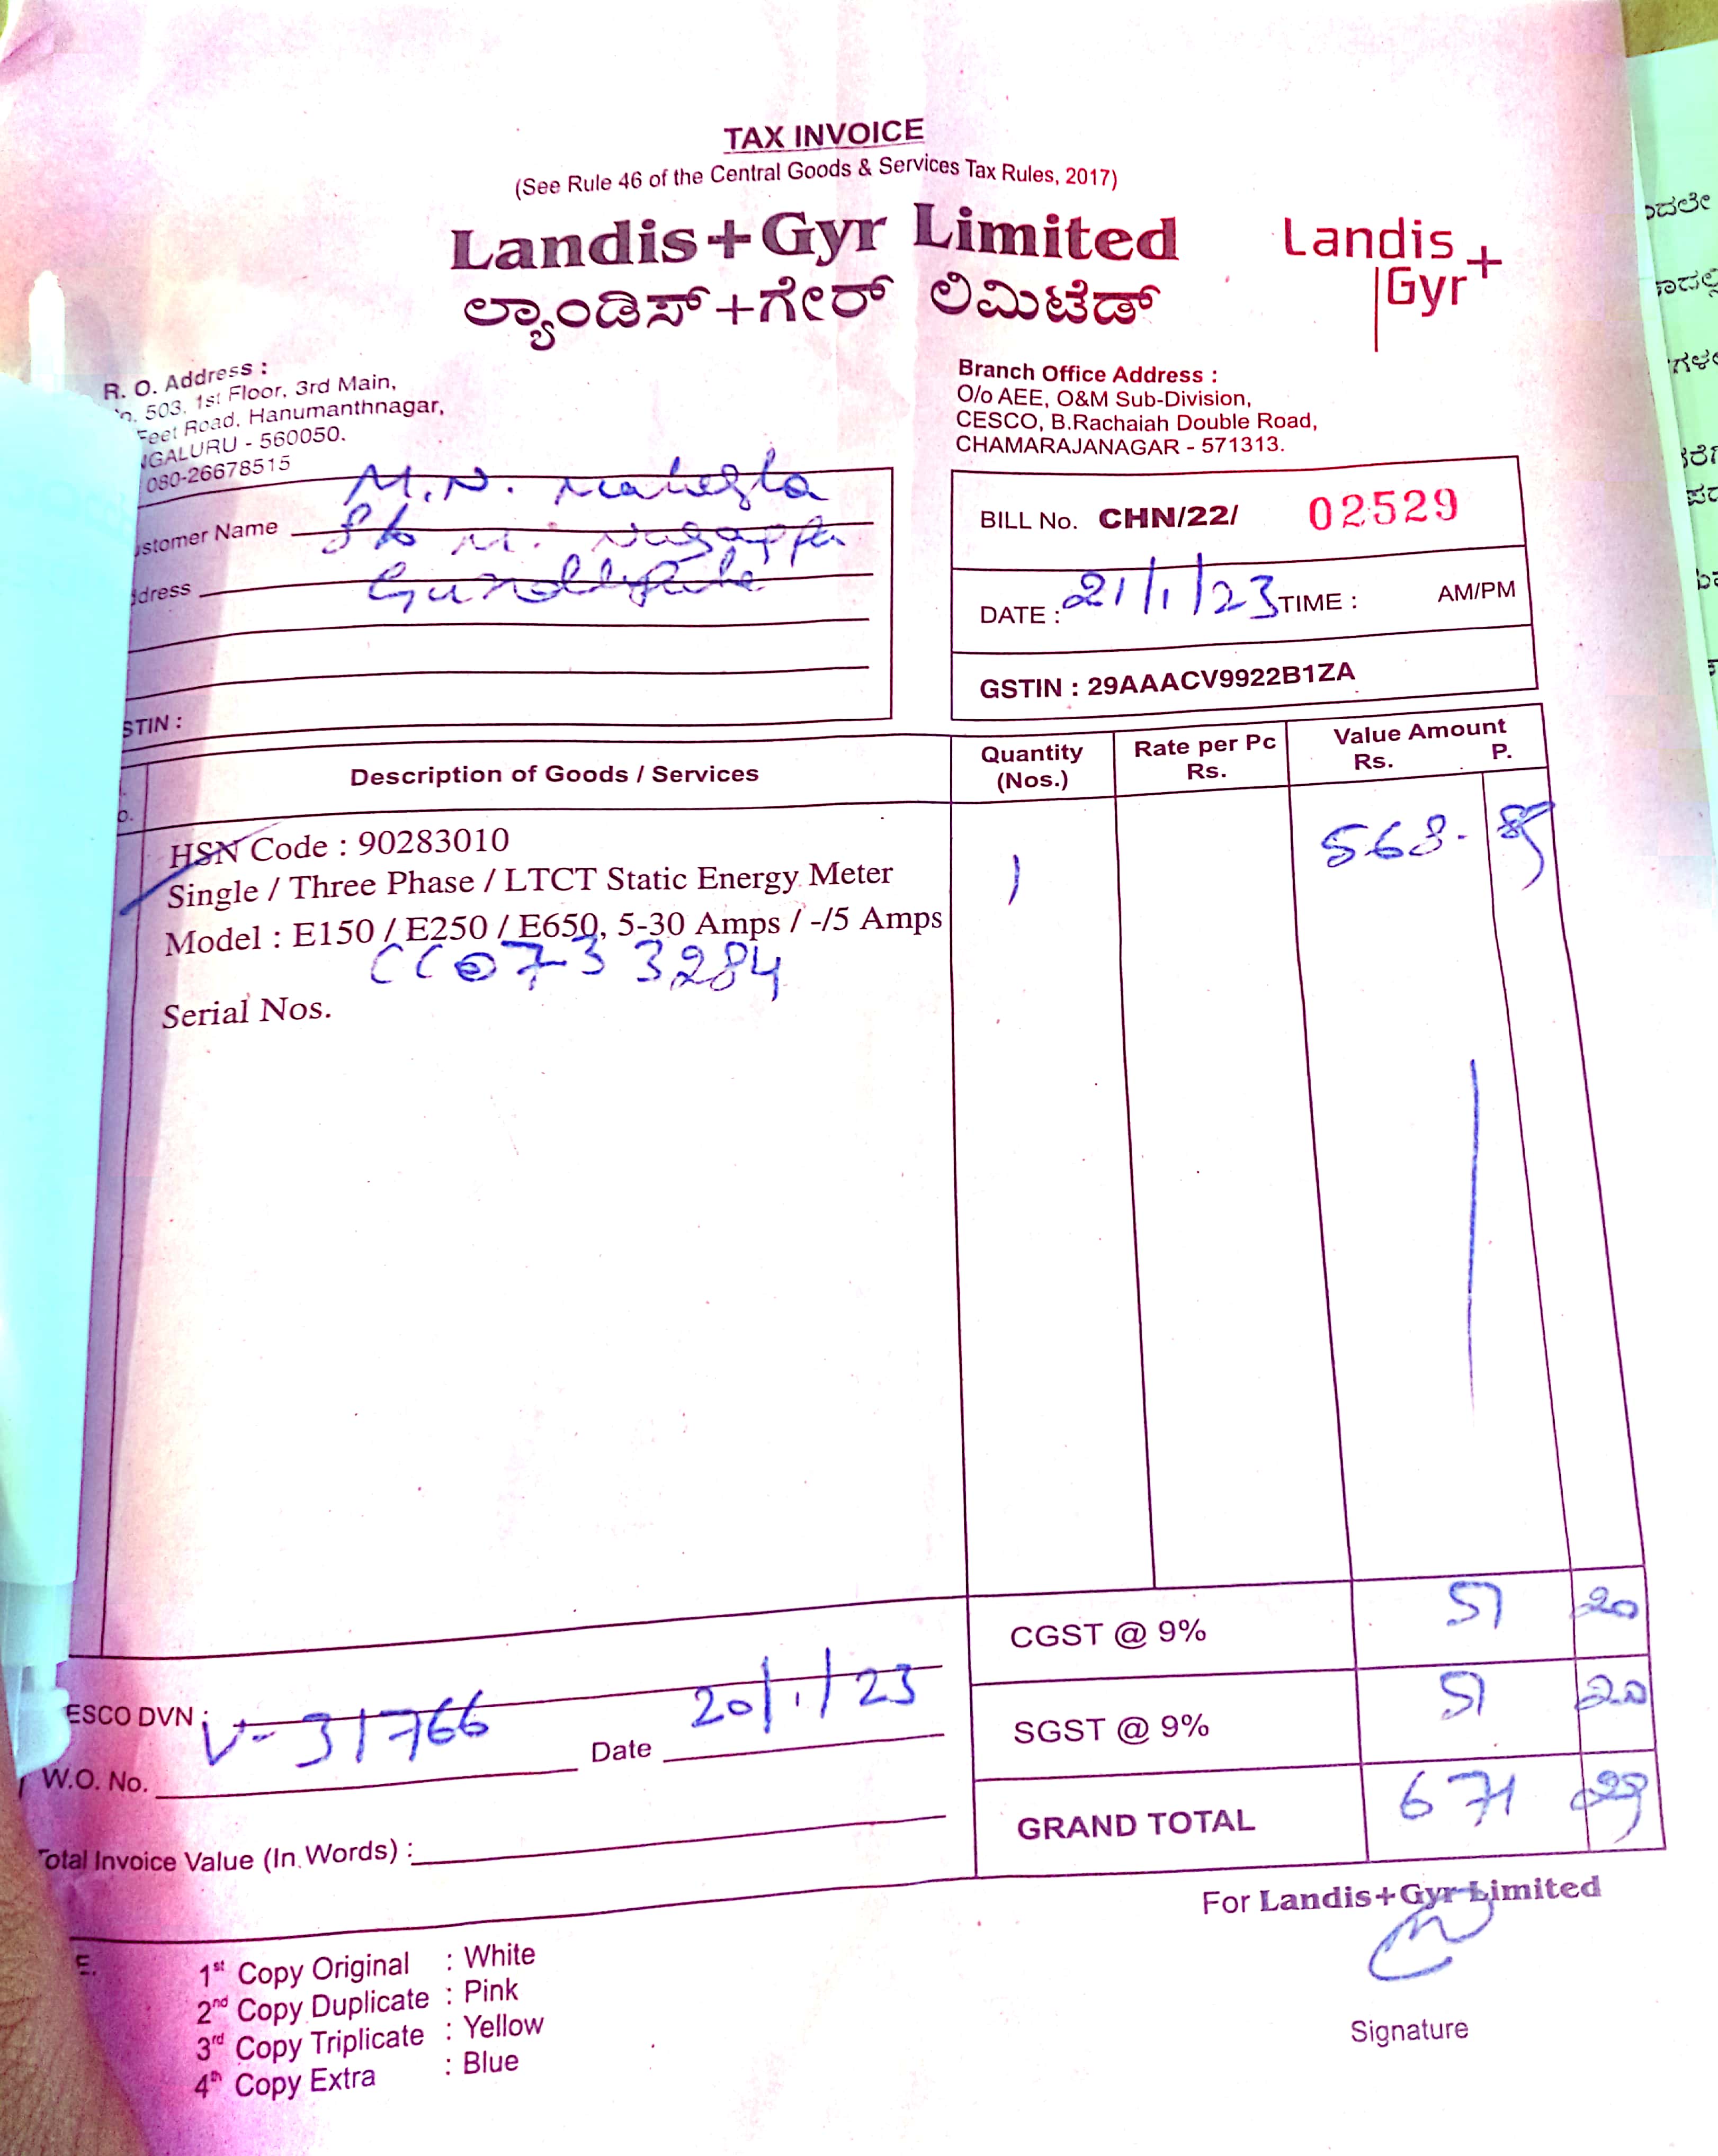 TAX INVOICE
(See Rule 46 of the Central Goods & Services Tax Rules, 2017)
Landis+Gyr Limited
ಲ್ಯಾಂಡಿಸ್+ಗೇರ್ ಲಿಮಿಟೆಡ್
Landis
Gyr+
R. O. Address :
503, 1st Floor, 3rd Main,
Feet Road, Hanumanthnagar,
NGALURU - 560050.
080-26678515
Branch Office Address :
O/o AEE, O&M Sub-Division,
CESCO, B.Rachaiah Double Road,
CHAMARAJANAGAR - 571313.
ustomer Name M.N.
S/o M.
ddress
STIN :
BILL No. CHN/22/ 02529
DATE : 21/1/23 TIME : AM/PM
GSTIN : 29AAACV9922B1ZA
Description of Goods / Services
Quantity (Nos.)
Rate per Pc Rs.
Value Amount Rs. P.
HSN Code : 90283010
Single / Three Phase / LTCT Static Energy Meter
Model : E150 / E250 / E650, 5-30 Amps / -/5 Amps
CC0733284
Serial Nos.
1
568-
CGST @ 9% 51 20
SGST @ 9% 51 20
GRAND TOTAL 671 29
ESCO DVN :
V-31766 20/1/23
W.O. No. Date
Total Invoice Value (In Words) :
For Landis+Gyr Limited
Signature
E.
1st Copy Original : White
2nd Copy Duplicate : Pink
3rd Copy Triplicate : Yellow
4th Copy Extra : Blue